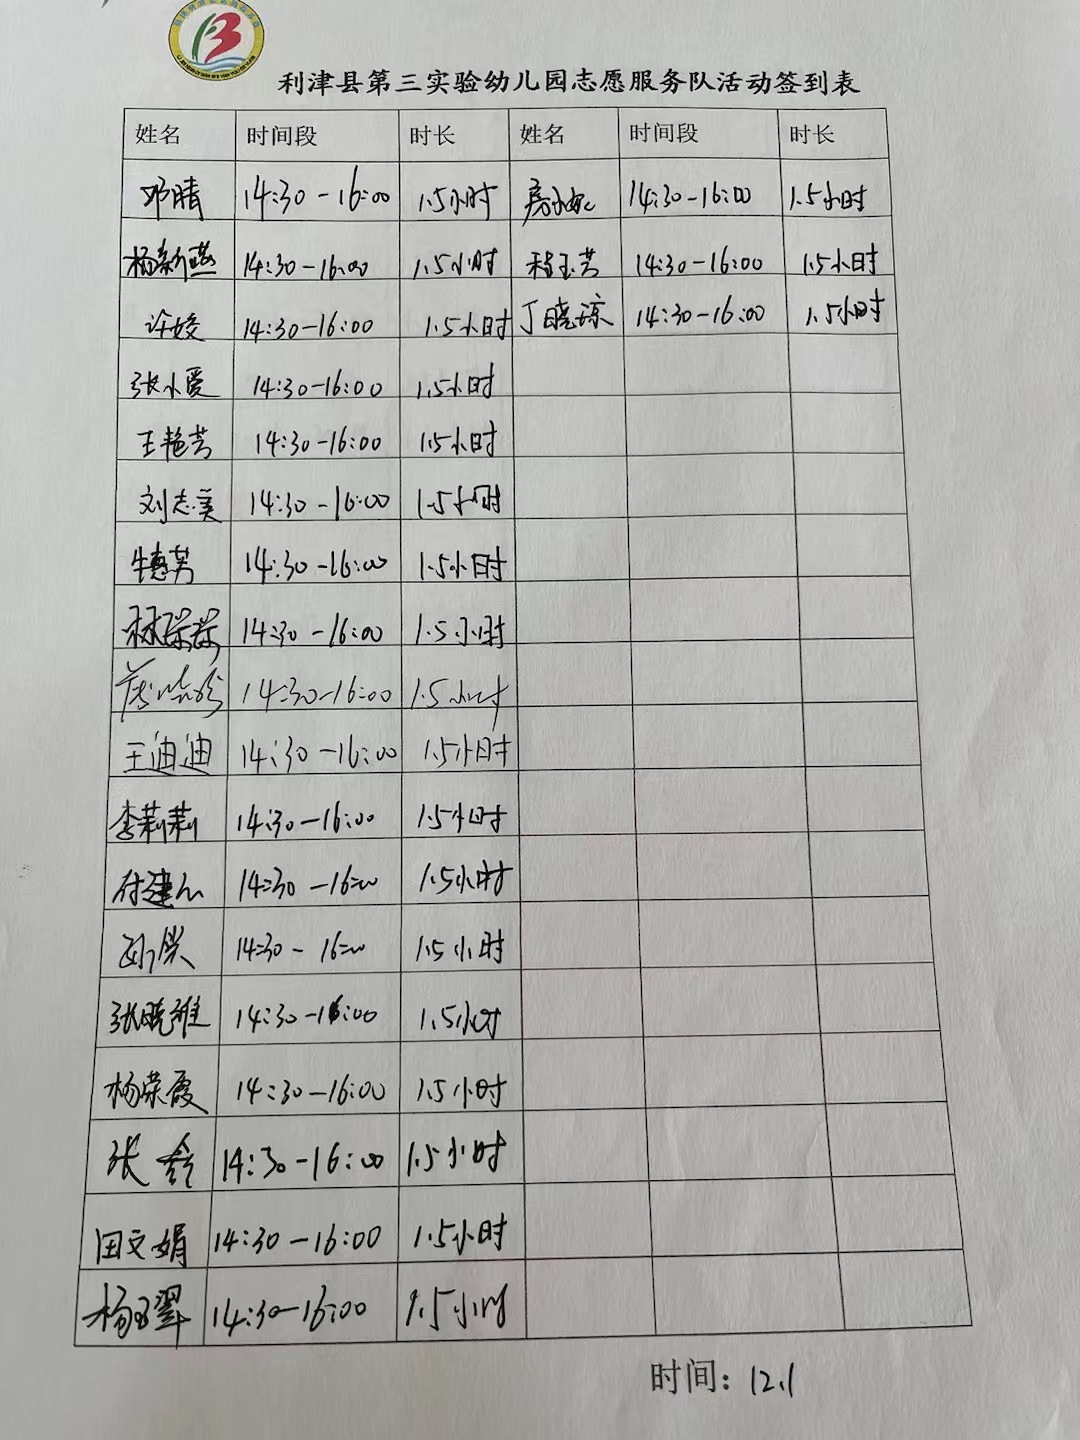 利津县第三实验幼儿园志愿服务队活动签到表
姓名 时间段 时长 姓名 时间段 时长
邓晴 14:30-16:00 1.5小时 14:30-16:00 1.5小时
杨新燕 14:30-16:00 1.5小时 程玉芳 14:30-16:00 1.5小时
许姣 14:30-16:00 1.5小时 丁晓琼 14:30-16:00 1.5小时
张小爱 14:30-16:00 1.5小时
王艳芳 14:30-16:00 1.5小时
刘志美 14:30-16:00 1.5小时
牛惠芳 14:30-16:00 1.5小时
14:30-16:00 1.5小时
14:30-16:00 1.5小时
王迪迪 14:30-16:00 1.5小时
李莉莉 14:30-16:00 1.5小时
14:30-16:00 1.5小时
14:30-16:00 1.5小时
张晓维 14:30-16:00 1.5小时
杨荣霞 14:30-16:00 1.5小时
张玲 14:30-16:00 1.5小时
田文娟 14:30-16:00 1.5小时
14:30-16:00 1.5小时
时间：12.1